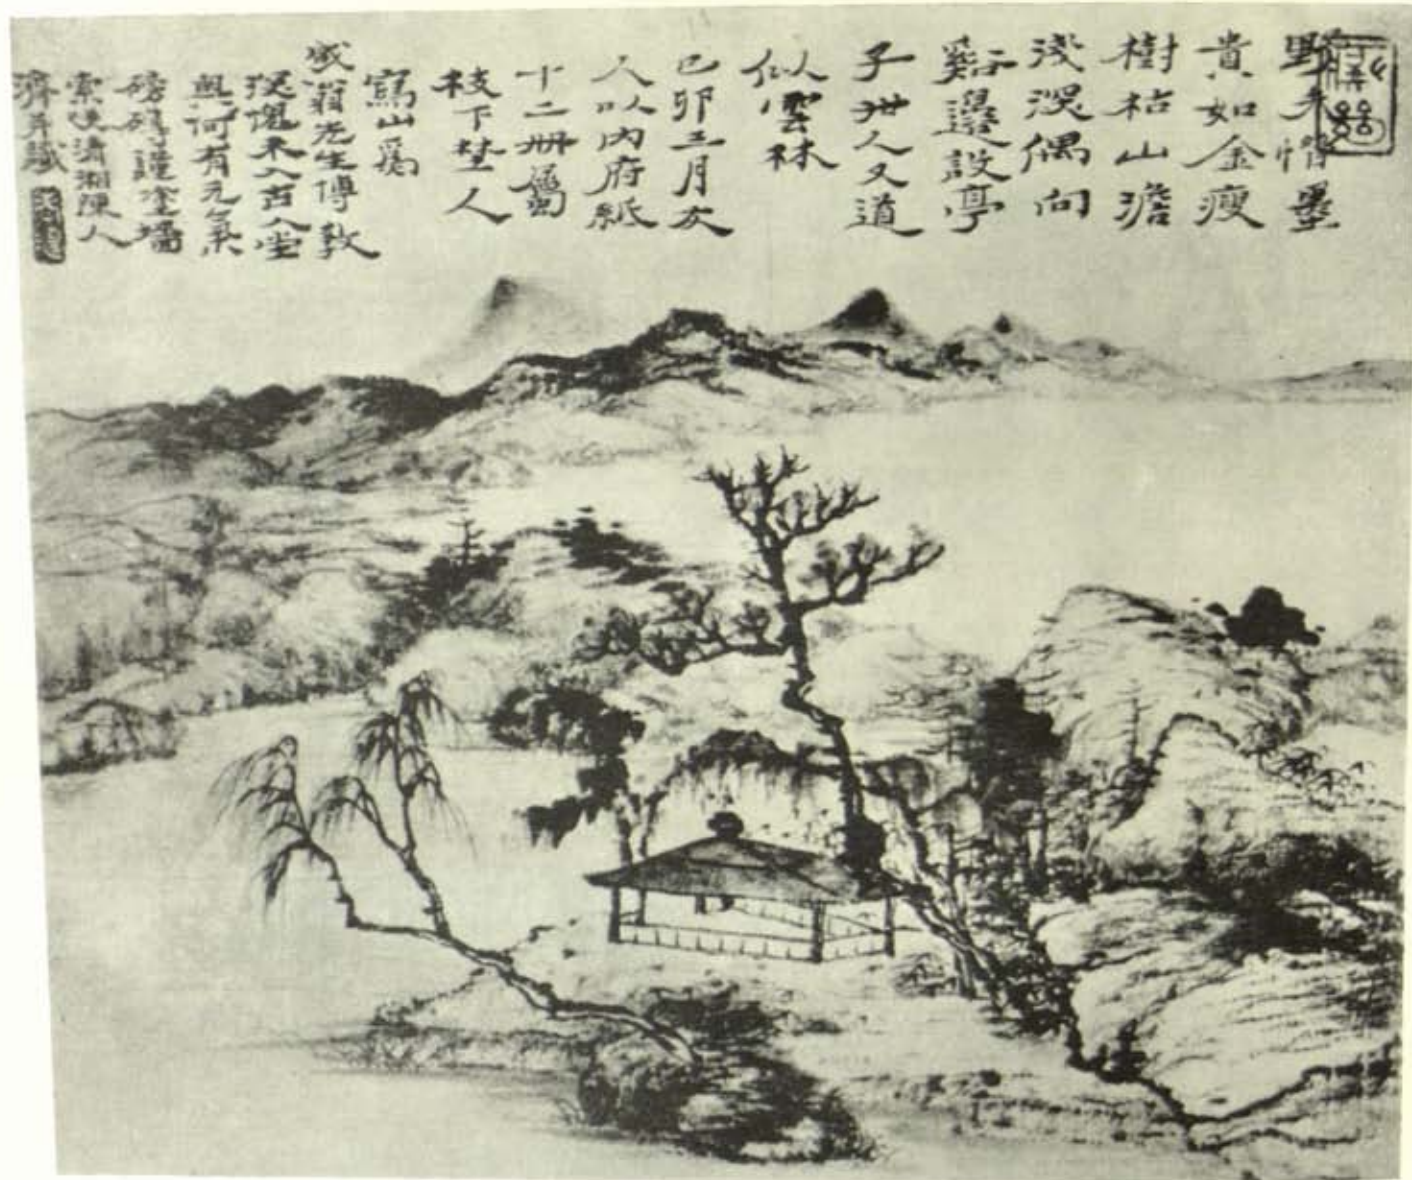 野夫惜墨
貴如金瘦
樹枯山澹
淺深偶向
谿邊設亭
子世人又道
似雲林
己卯三月友
人以內府紙
十二冊屬
枝下埜人
寫山為
老生傅教
深愧未入古人堂
奧何有元氣
磅礴謹塗墻
索笑清湘陳人
濟并識